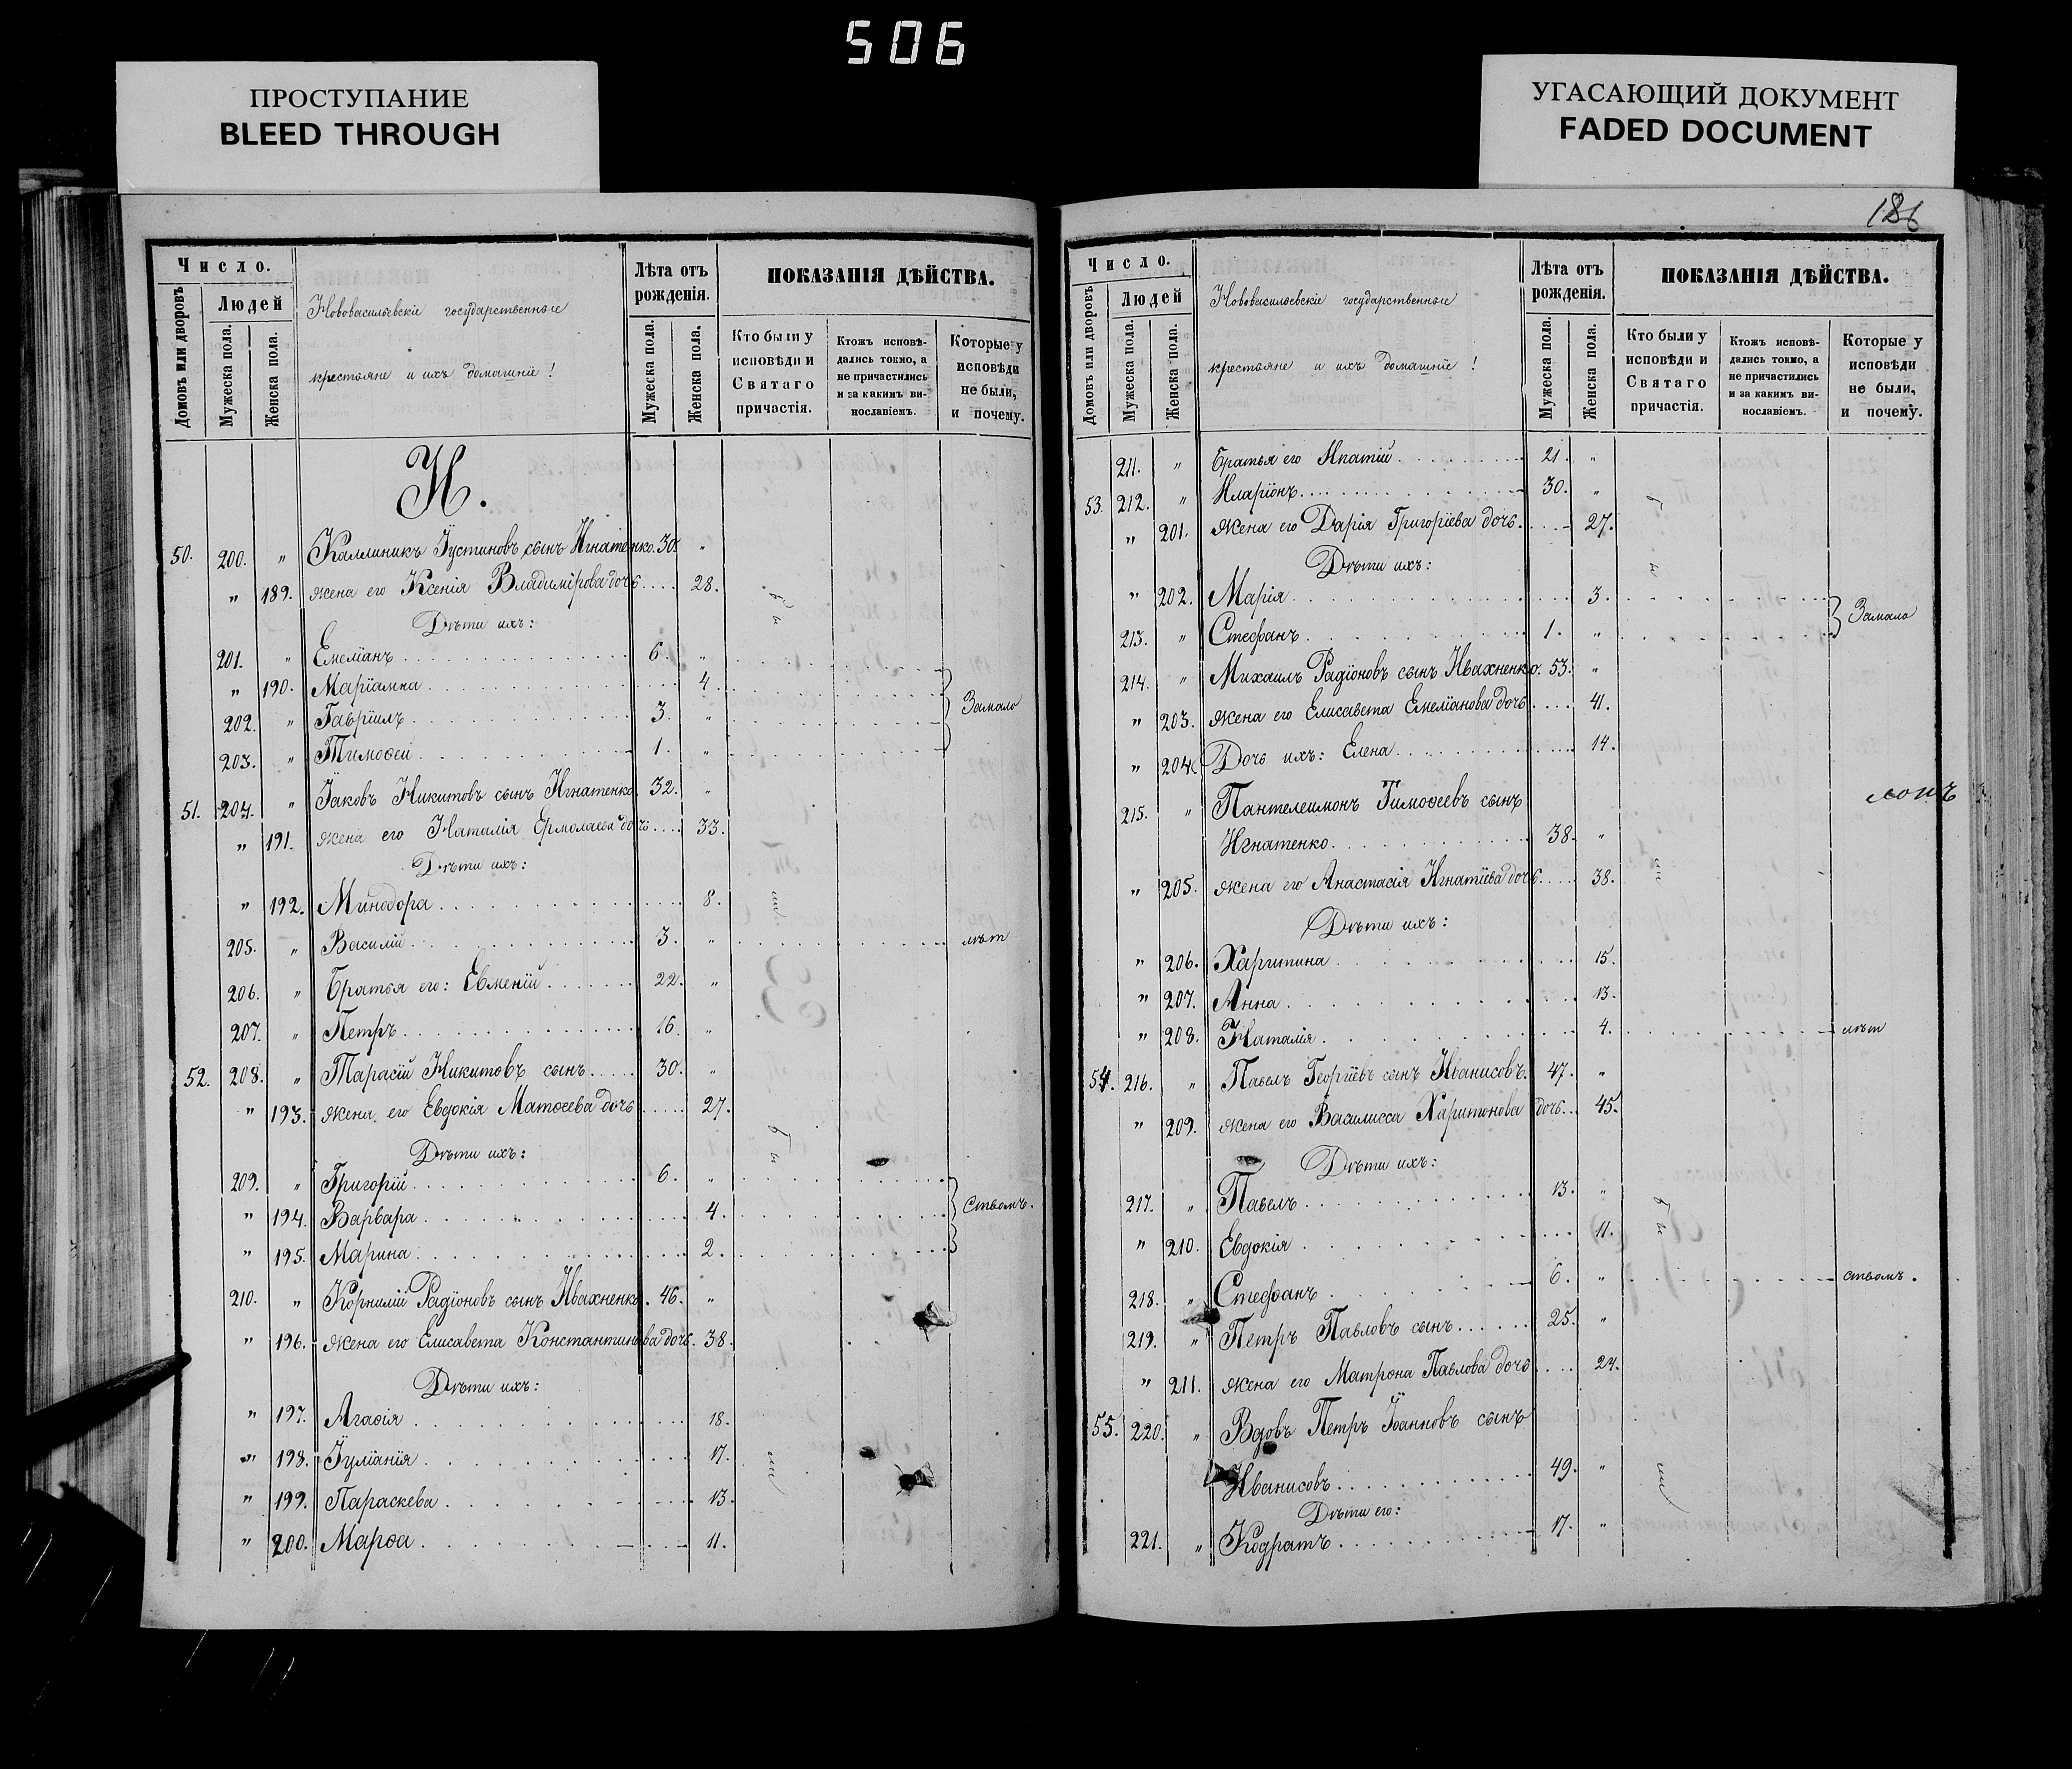 506
ПРОСТУПАНИЕ
BLEED THROUGH
УГАСАЮЩИЙ ДОКУМЕНТ
FADED DOCUMENT
Число.
Домовъ или дворовъ
Людей
Мужеска пола.
Женска пола.
Нововасильевскіе государственные
крестьяне и ихъ домашніе!
Лѣта отъ рожденія.
Мужеска пола.
Женска пола.
ПОКАЗАНІЯ ДѢЙСТВА.
Кто были у исповѣди и Святаго причастія.
Ктожъ исповѣдались токмо, а не причастились и за какимъ винославіемъ.
Которые у исповѣди не были, и почему.
И.
50. 200. " Каллиникъ Іустиновъ сынъ Игнатенко. 30. "
" 189. жена его Ксенія Владимірова дочь .... 28.
бы
Дѣти ихъ:
201. " Емеліанъ 6. "
" 190. Маріамна 4.
202. " Гавріилъ 3. " Замало
203. " Тимоѳей 1. "
51. 204. " Іаковъ Никитовъ сынъ Игнатенко. 32. "
" 191. жена его Наталія Ермолаева дочь .... 33.
Дѣти ихъ:
" 192. Минодора 8.
205. " Василій 3. " лѣт
206. " Братья его: Евменій 22. "
207. " Петръ 16. "
52. 208. " Тарасій Никитовъ сынъ 30. "
" 193. жена его Евдокія Матѳеева дочь 27.
бы
Дѣти ихъ:
209. " Григорій 6. "
" 194. Варвара 4. ствомъ.
" 195. Марина 2.
210. " Корнилій Радіоновъ сынъ Ивахненко. 46. "
" 196. жена его Елисавета Константинова дочь. 38.
Дѣти ихъ:
" 197. Агаѳія 18.
" 198. Іуліанія 17.
" 199. Параскева 13.
" 200. Марѳа 11.
186
Число.
Домовъ или дворовъ
Людей
Мужеска пола.
Женска пола.
Нововасильевскіе государственные
крестьяне и ихъ домашніе!
Лѣта отъ рожденія.
Мужеска пола.
Женска пола.
ПОКАЗАНІЯ ДѢЙСТВА.
Кто были у исповѣди и Святаго причастія.
Ктожъ исповѣдались токмо, а не причастились и за какимъ винославіемъ.
Которые у исповѣди не были, и почему.
211. " Братья его Ипатій 21. "
53. 212. " Иларіонъ 30. "
" 201. жена его Дарія Григоріева дочь 27.
бы
Дѣти ихъ:
" 202. Марія 3. Замало
213. " Стефанъ 1. "
214. " Михаилъ Радіоновъ сынъ Ивахненко. 53. "
" 203. жена его Елисавета Емеліанова дочь 41.
" 204. Дочь ихъ: Елена 14.
215. " Пантелеимонъ Тимоѳеевъ сынъ
Игнатенко 38. "
" 205. жена его Анастасія Игнатіева дочь 38.
Дѣти ихъ:
" 206. Харитина 15.
" 207. Анна 13.
" 208. Наталія 4. лѣт
54. 216. " Павелъ Георгіевъ сынъ Иванисовъ. 47. "
" 209. жена его Василисса Харитонова дочь. 45.
Дѣти ихъ:
217. " Павелъ 13. "
" 210. Евдокія 11.
бы
218. " Стефанъ 6. " ствомъ.
219. " Петръ Павловъ сынъ 25. "
" 211. жена его Матрона Павлова дочь 24.
55. 220. " Вдовъ Петръ Іоанновъ сынъ
Иванисовъ 49. "
Дѣти его:
221. " Кодратъ 17. "